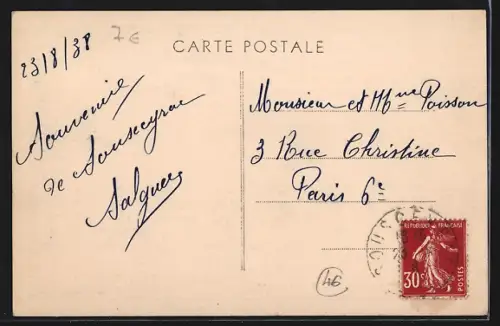 23/8/38
7€
CARTE POSTALE
Souvenir
de Sousceyrac
Salgues
Monsieur et Mme Poisson
3 Rue Christine
Paris 6e
SOUSCEY
REPUBLIQUE FRANÇAISE
30c
POSTES
46